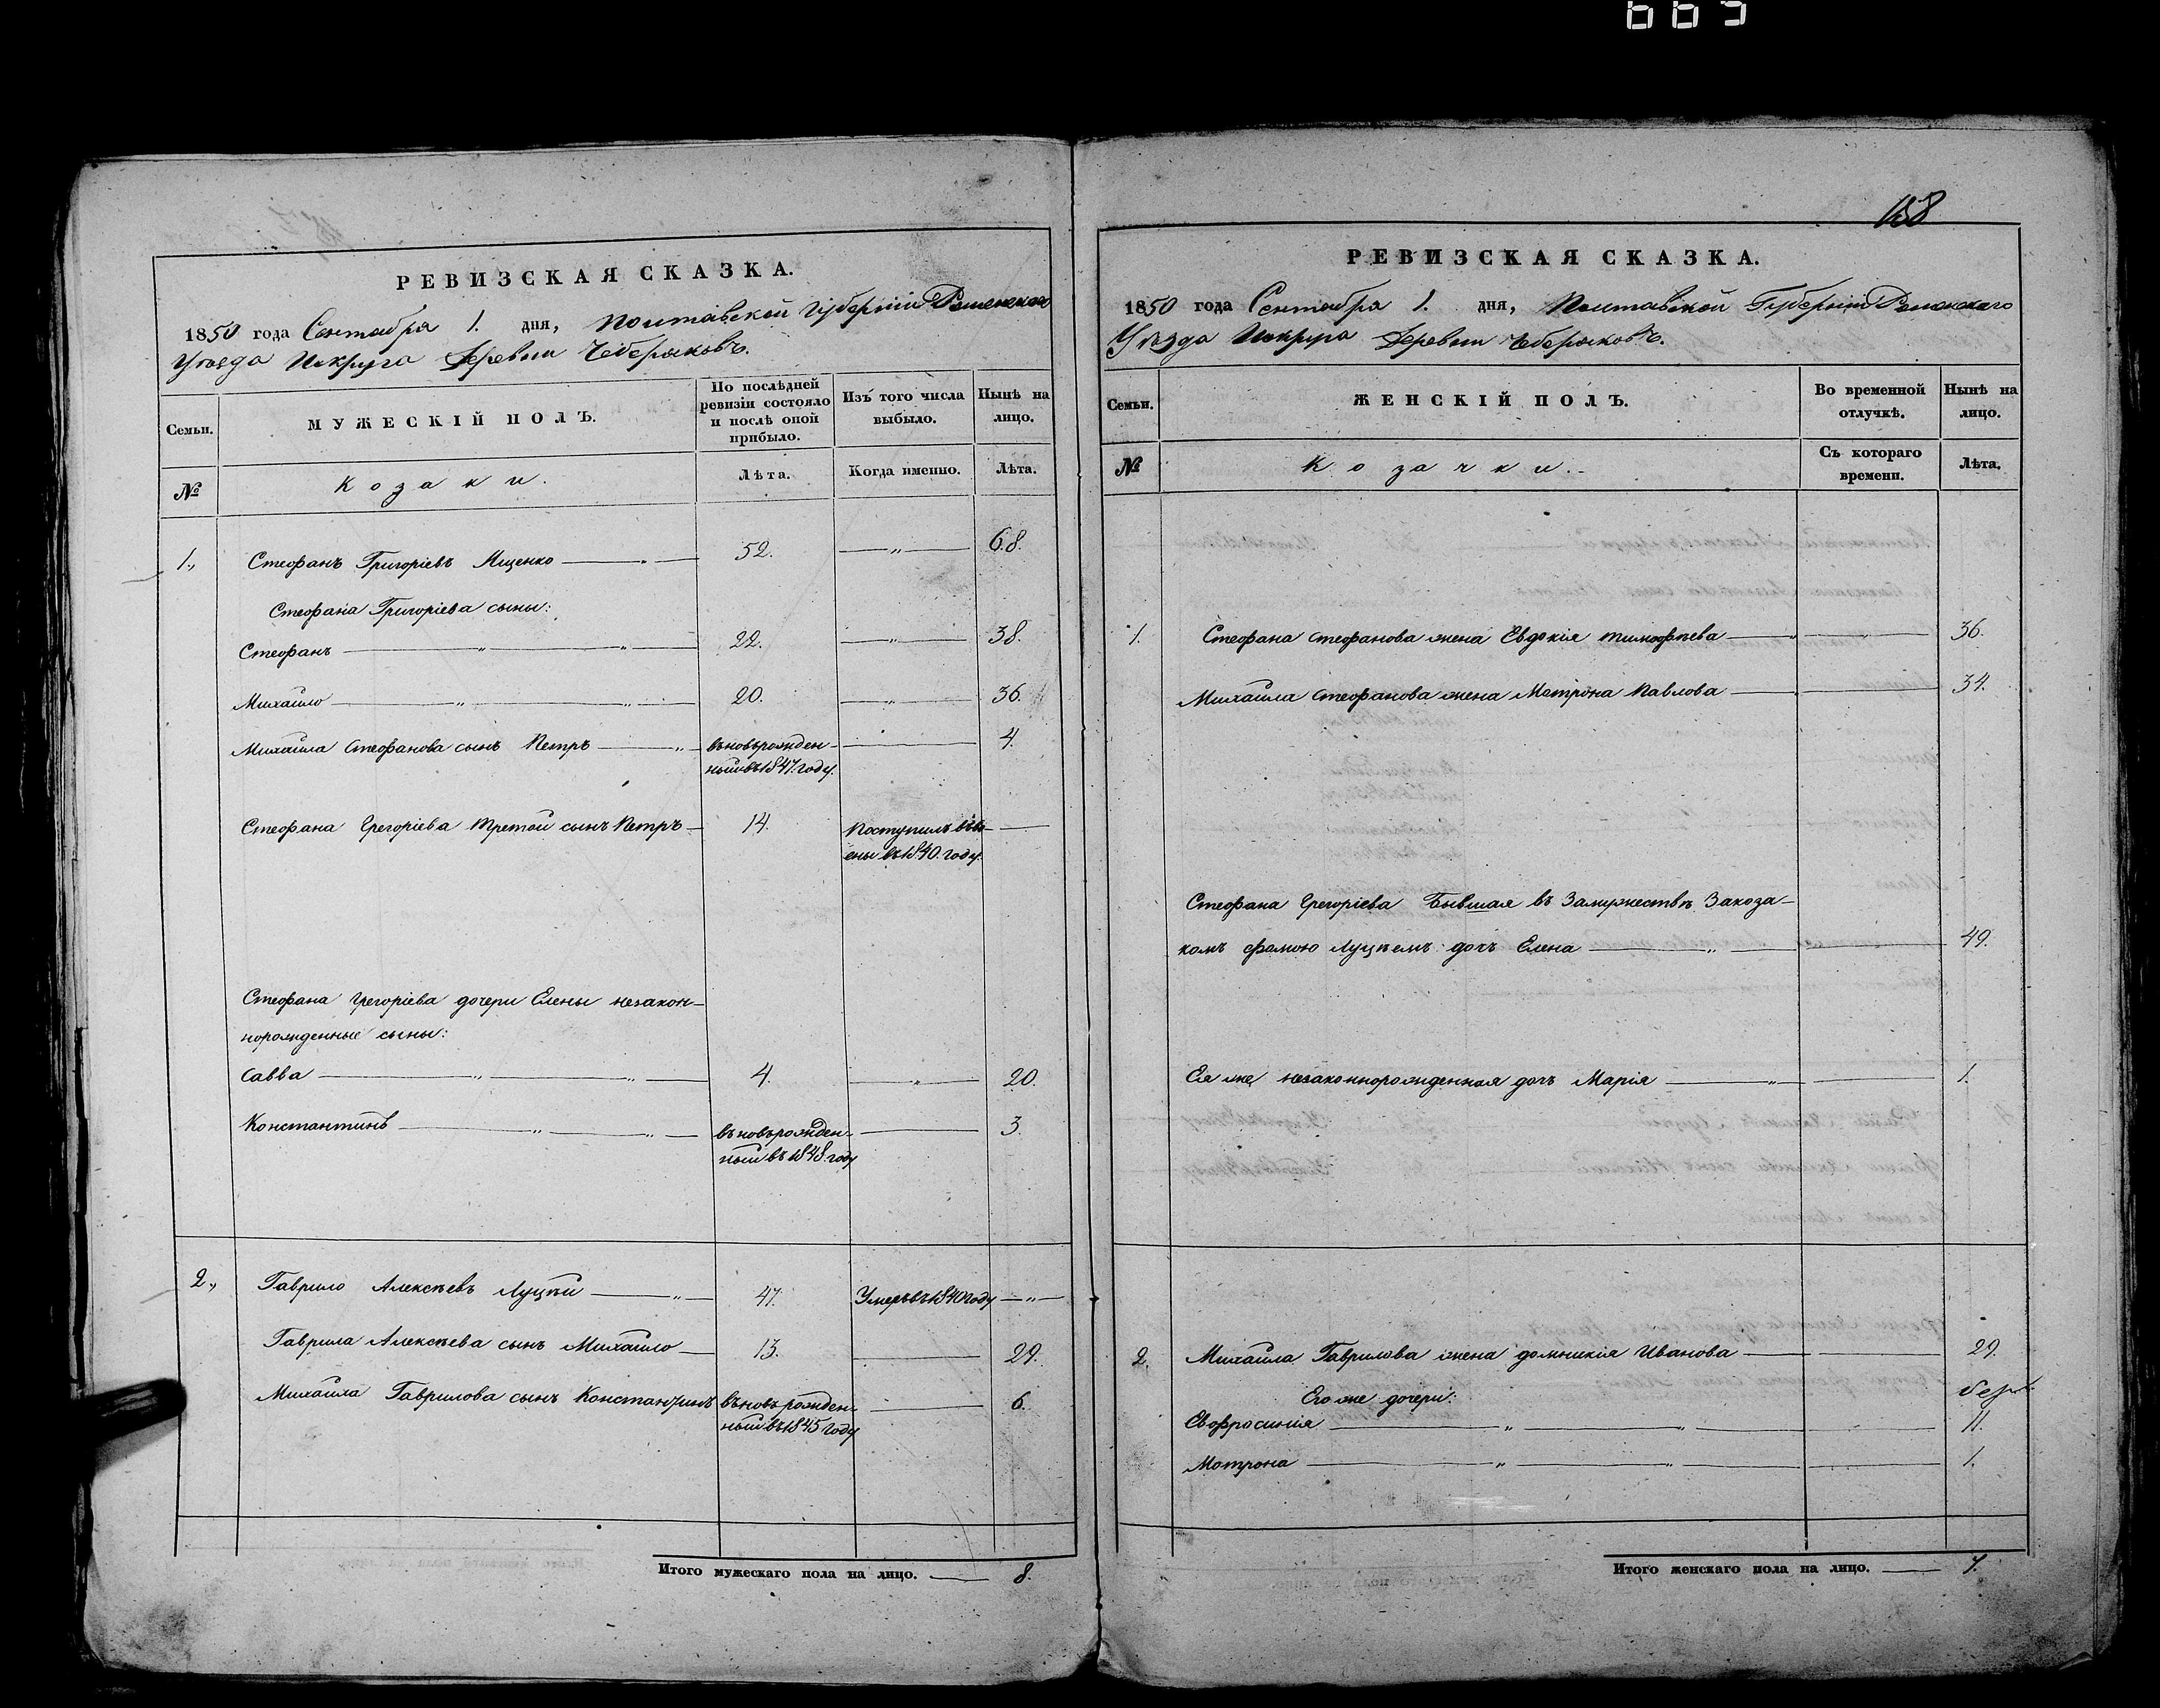 665
РЕВИЗСКАЯ СКАЗКА.
1850 года Сентября 1. дня, Полтавской Губерніи Роменскаго
Уѣзда Иокруга Деревни Чеберяковъ.
Семьи.
МУЖЕСКІЙ ПОЛЪ.
По послѣдней ревизіи состояло и послѣ оной прибыло.
Изъ того числа выбыло.
Нынѣ на лицо.
№
Козаки.
Лѣта.
Когда именно.
Лѣта.
1., Стефанъ Григоріевъ Мценко — „ — 52. — „ — 68.
Стефана Григоріева сыны:
Стефанъ — „ — „ — 22. — „ — 38.
Михайло — „ — „ — 20. — „ — 36.
Михайла Стефанова сынъ Петръ — „ — вьновьрожден- — 4.
ныйвъ1847.году.
Стефана Грегоріева третой сынъ Петръ — 14. Поступилъ —
въ1840.году.
Стефана Грегоріева дочери Елены незакон-
норожденные сыны:
Савва — „ — „ — 4. — „ — 20.
Константинъ — „ — „ — вьновьрожден- — 3.
ныйвъ1848.году
2., Гаврило Алексѣевъ Луцѣй — „ — 47. Умеръвъ1840году — „ —
Гаврила Алексѣева сынъ Михайло — 13. — 29.
Михайла Гаврилова сынъ Константинъ вьновьрожден- — 6.
ныйвъ1845году
Итого мужескаго пола на лицо. — 8.
158
РЕВИЗСКАЯ СКАЗКА.
1850 года Сентября 1. дня, Полтавской Губерніи Роменскаго
Уѣзда Иокруга Деревни Чеберяковъ.
Семьи.
ЖЕНСКІЙ ПОЛЪ.
Во временной отлучкѣ.
Нынѣ на лицо.
№
Козачки.-
Съ котораго времени.
Лѣта.
1. Стефана стефанова жена Евдокія тимофѣева — „ — „ — 36.
Михайла стефанова жена Мотрона Павлова — 34.
Стефана Грегоріева Бывшая въ Замужествѣ Закоза-
комъ фомою Луцѣемъ дочь Елена — „ — 49.
Ея же незаконнорожденная дочь Марія — „ — 1.
2. Михайла Гаврилова жена домникія Иванова — 29.
Его же дочери:
Евфросинія — „ — „ — 11.
Мотрона — „ — „ — 1.
Итого женскаго пола на лицо. — 7.